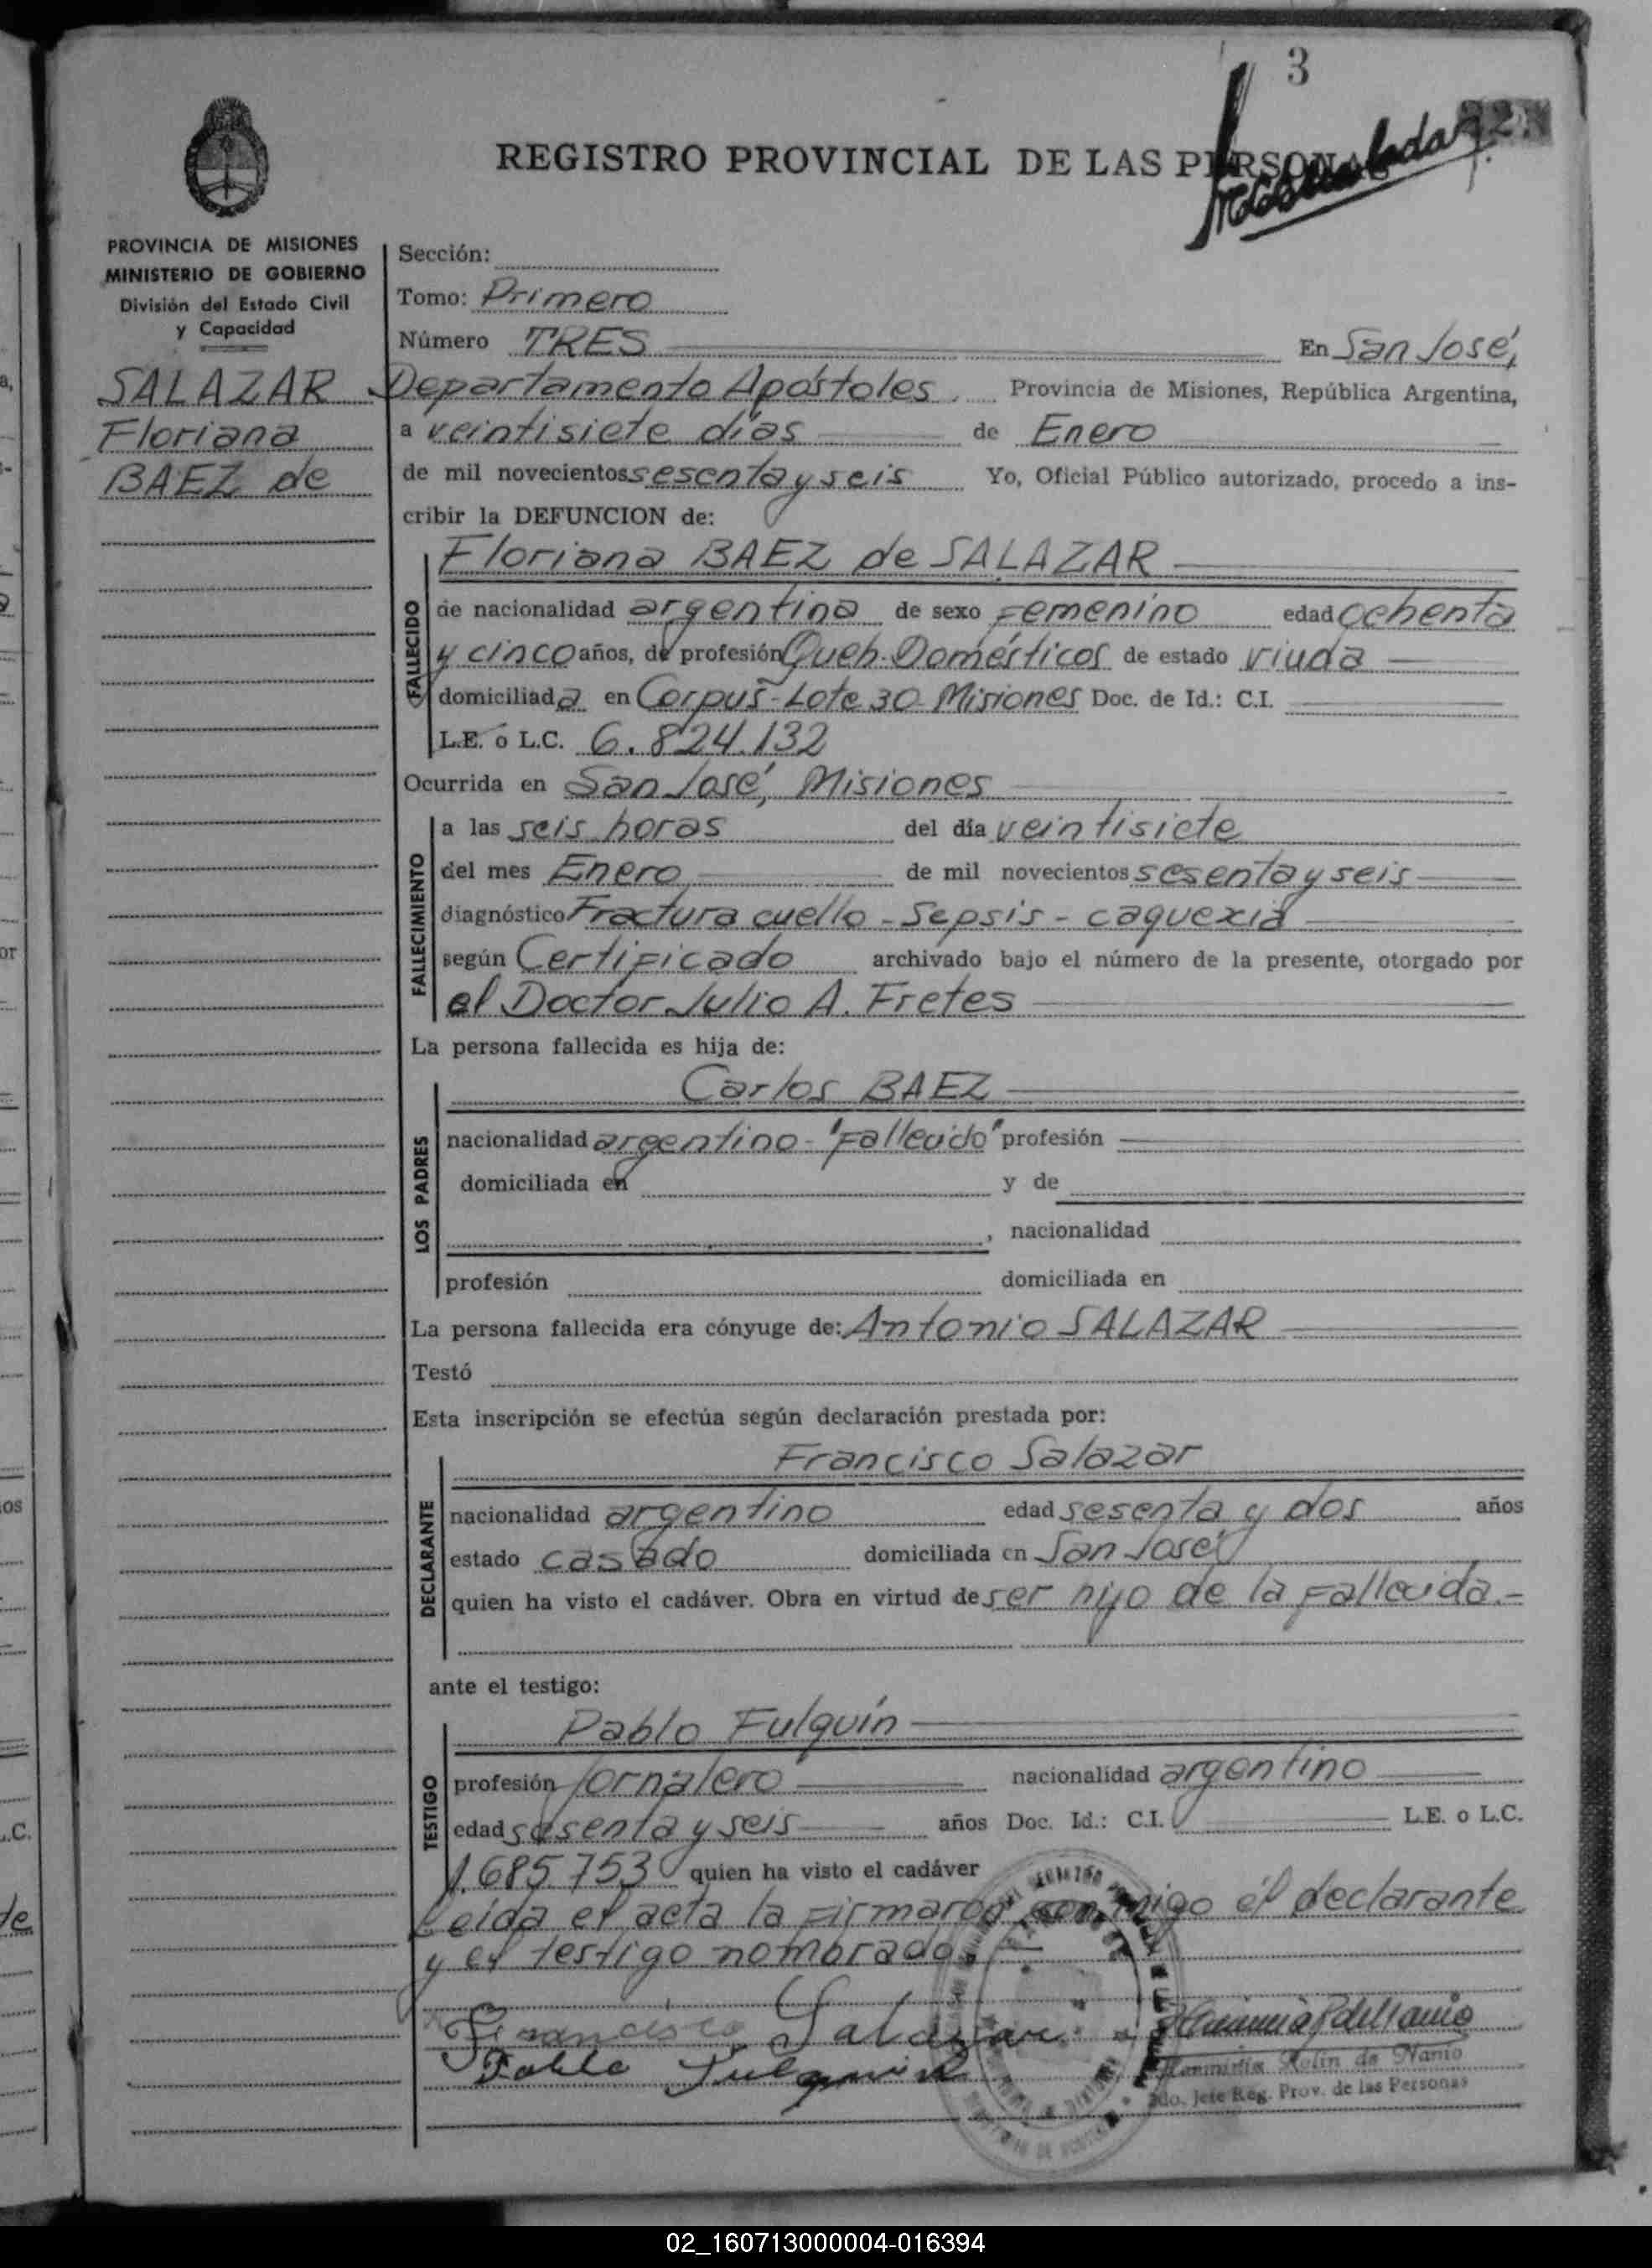 3
REGISTRO PROVINCIAL DE LAS PERSONAS
PROVINCIA DE MISIONES
MINISTERIO DE GOBIERNO
División del Estado Civil
y Capacidad
SALAZAR
Floriana
BAEZ de
Sección:
Tomo: Primero
Número TRES En San José,
Departamento Apóstoles, Provincia de Misiones, República Argentina,
a veintisiete días de Enero
de mil novecientos sesenta y seis Yo, Oficial Público autorizado, procedo a ins-
cribir la DEFUNCION de:
FALLECIDO
Floriana BAEZ de SALAZAR
de nacionalidad argentina de sexo Femenino edad ochenta
y cinco años, de profesión Queh. Domésticos de estado viuda
domiciliada en Corpus-Lote 30 Misiones Doc. de Id.: C.I.
L.E. o L.C. 6.824.132
Ocurrida en San José, Misiones
FALLECIMIENTO
a las seis horas del día veintisiete
del mes Enero de mil novecientos sesenta y seis
diagnóstico Fractura cuello - Sepsis - caquexia
según Certificado archivado bajo el número de la presente, otorgado por
el Doctor Julio A. Fretes
La persona fallecida es hija de:
LOS PADRES
Carlos BAEZ
nacionalidad argentino - "Fallecido" profesión
domiciliada en y de
, nacionalidad
profesión domiciliada en
La persona fallecida era cónyuge de: Antonio SALAZAR
Testó
Esta inscripción se efectúa según declaración prestada por:
DECLARANTE
Francisco Salazar
nacionalidad argentino edad sesenta y dos años
estado casado domiciliada en San José
quien ha visto el cadáver. Obra en virtud de ser hijo de la Fallecida.-
ante el testigo:
TESTIGO
Pablo Fulquín
profesión Jornalero nacionalidad argentino
edad sesenta y seis años Doc. Id.: C.I. L.E. o L.C.
1.685.753 quien ha visto el cadáver
Leída el acta la Firmaron conmigo él declarante
y el testigo nombrado.
Francisco Salazar
Pablo Fulquin
Herminia Rolin de Nanio
2do. Jefe Reg. Prov. de las Personas
02_160713000004-016394